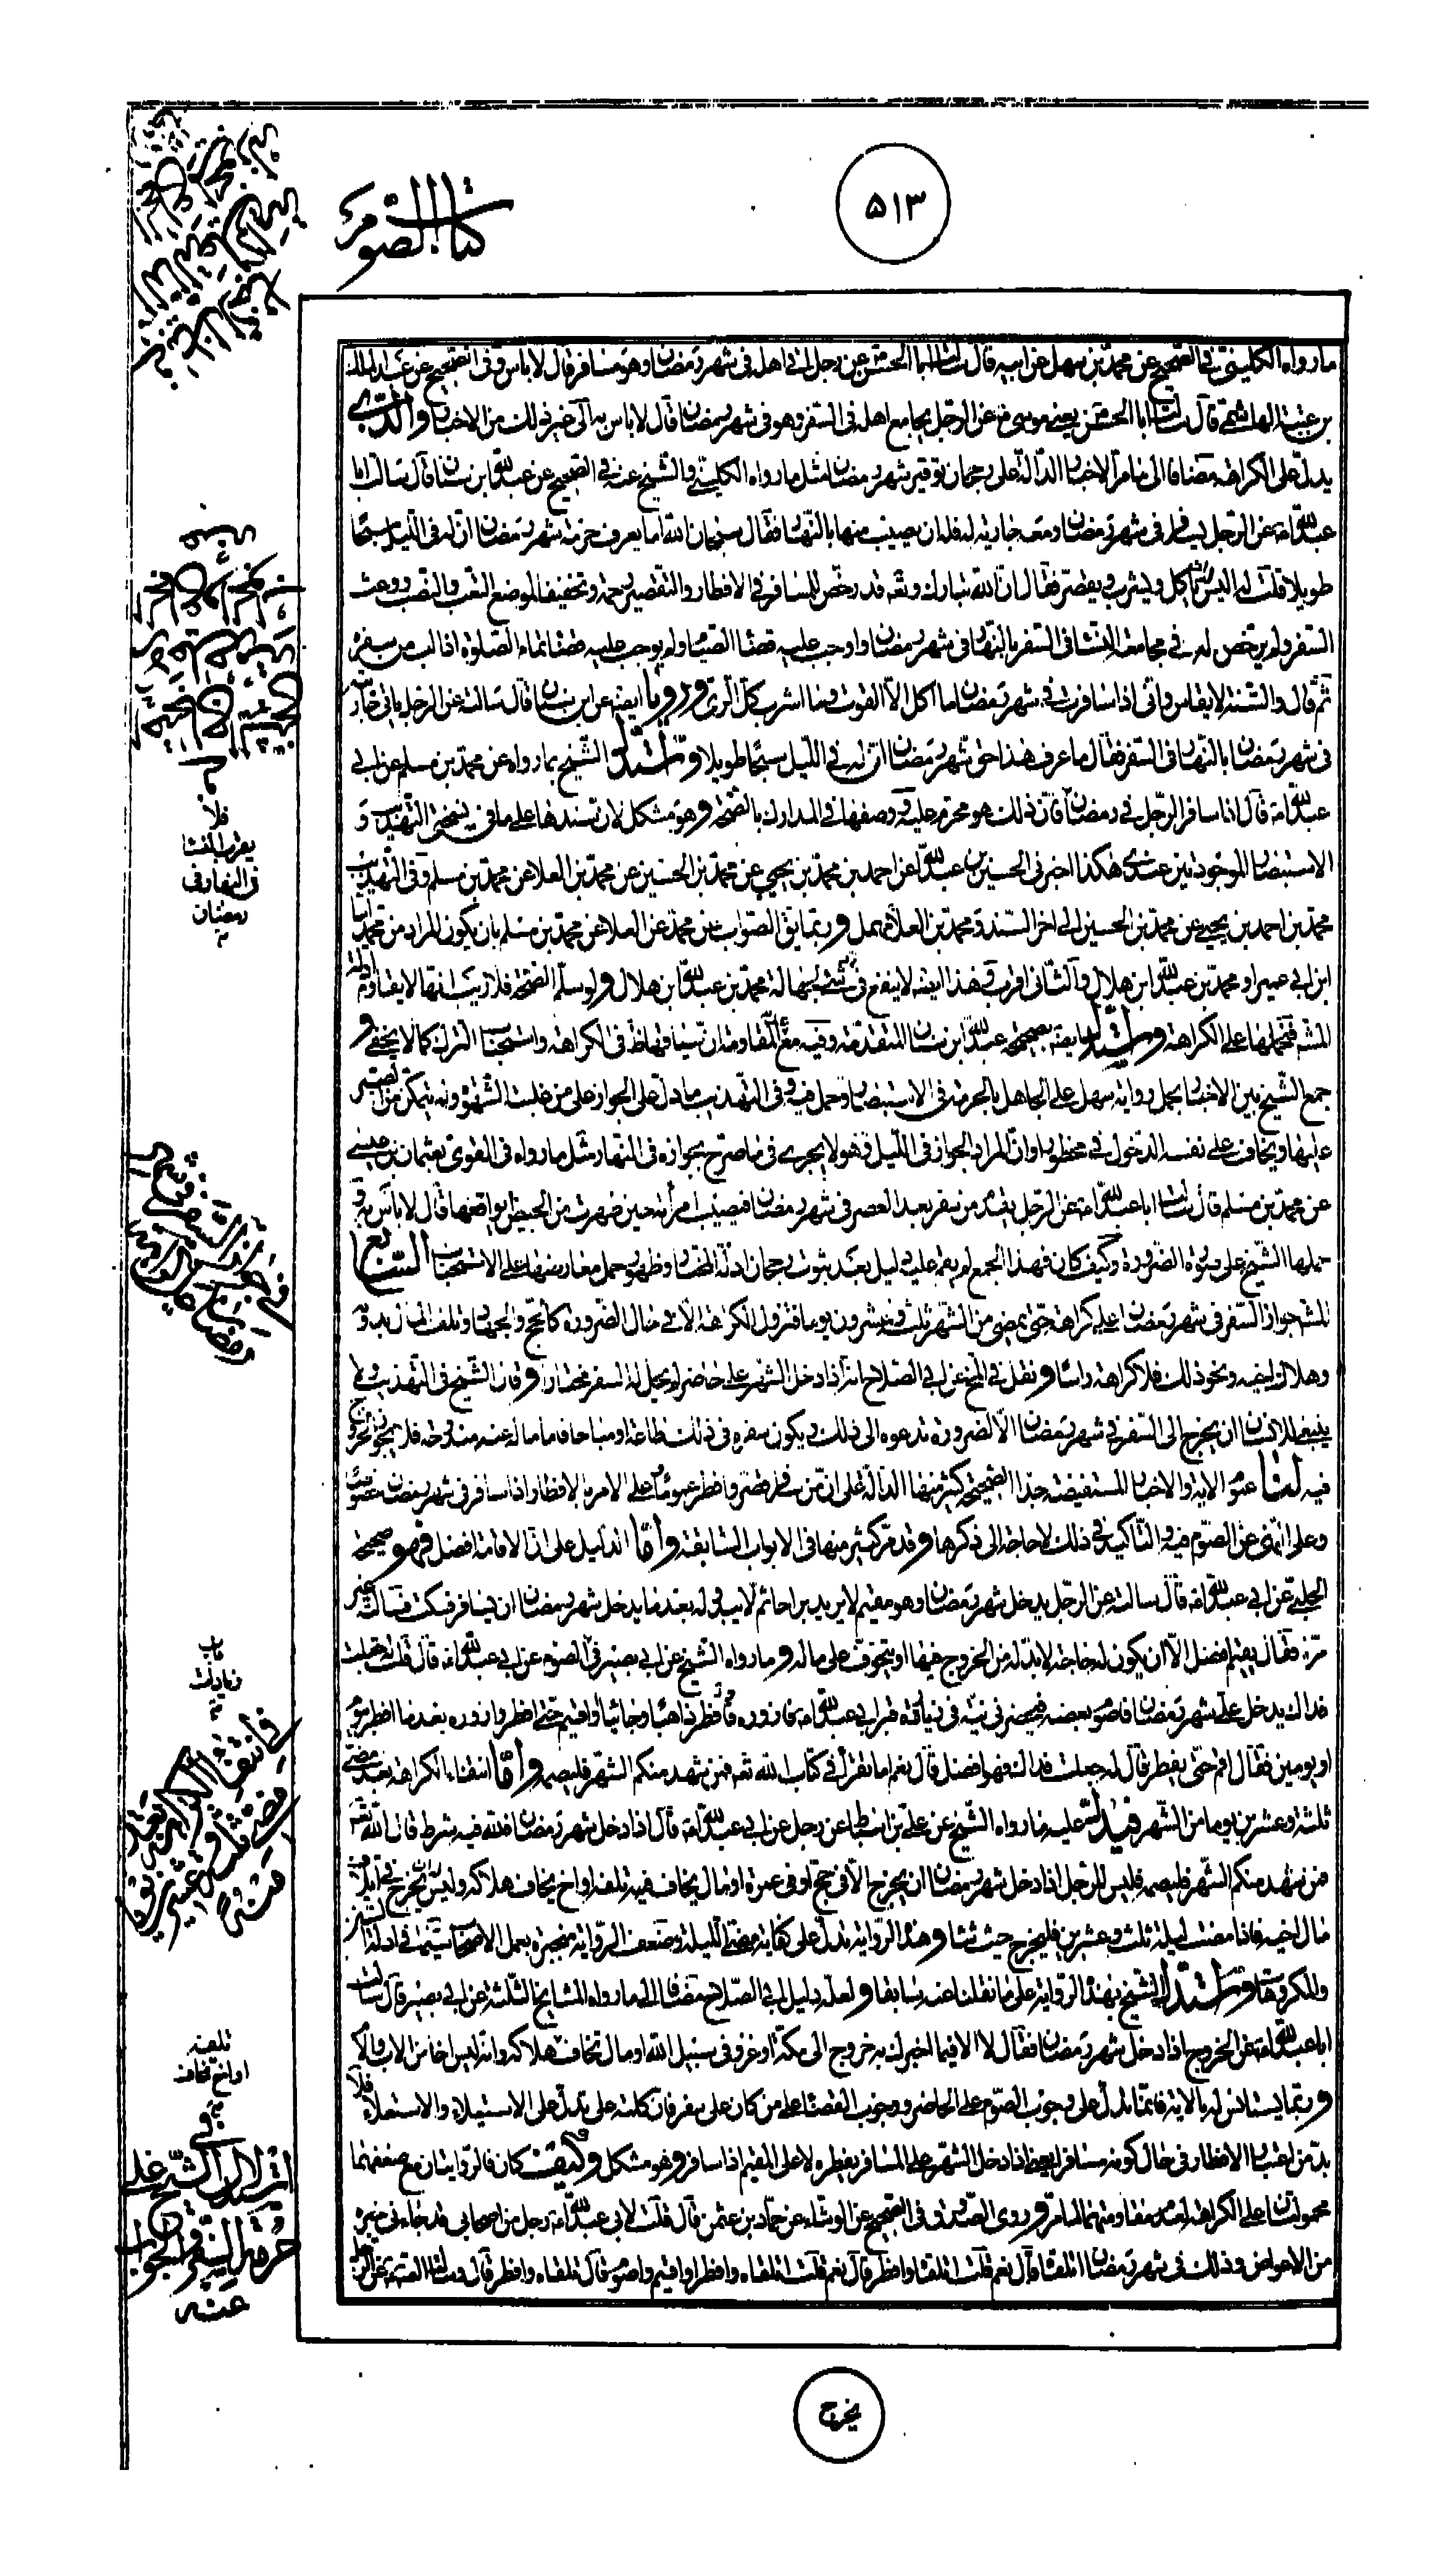 ۵۱۳
كتاب الصوم
ما رواه الكليني في الصحيح عن محمد بن سهل عن ابيه قال سألت ابا الحسن ع عن رجل اتى اهله في شهر رمضان وهو مسافر قال لا باس وفي الصحيح عن عبد الملك
بن عتبة الهاشمي قال سألت ابا الحسن يعني موسى ع عن الرجل يجامع اهله في السفر وهو في شهر رمضان قال لا باس به الى غير ذلك من الاخبار والذي
يدل على الكراهة مضافا الى ما مر الاخبار الدالة على رجحان توقير شهر رمضان مثل ما رواه الكليني والشيخ عنه في الصحيح عن عبد الله ابن سنان قال سألت ابا
عبد الله ع عن الرجل يسافر في شهر رمضان ومعه جارية له فله ان يصيب منها بالنهار فقال سبحان الله اما يعرف حرمة شهر رمضان ان له في الليل سبحا
طويلا قلت له اليس له ان ياكل ويشرب ويقصر فقال ان الله تبارك وتعه قد رخص للمسافر في الافطار والتقصير رحمة وتخفيفا لموضع التعب والنصب ووعث
السفر ولم يرخص له في مجامعة النساء في السفر بالنهار في شهر رمضان واوجب عليه قضاء الصيام ولم يوجب عليه قضاء تمام الصلوة اذا اب من سفره
ثم قال والسنة لا يقاس واني اذا سافرت في شهر رمضان ما اكل الا القوت وما اشرب كل الري ورويا ايضه عن ابن سنان قال سالته عن الرجل ياتي جاريته
في شهر رمضان بالنهار في السفر فقال ما عرف هذا حق شهر رمضان ان له في الليل سبحا طويلا واستدل الشيخ بما رواه عن محمد بن مسلم عن ابي
عبد الله ع قال اذا سافر الرجل في رمضان فان ذلك هو محرم عليه ووصفها في المدارك بالصحة وهو مشكل لان سندها على ما في نسختي التهذيب و
الاستبصار الموجودتين عندي هكذا اخبرني الحسين بن عبد الله عن احمد بن محمد بن يحيى عن محمد بن الحسين عن محمد بن العلا عن محمد بن مسلم وفي التهذيب
محمد بن احمد بن يحيى عن محمد بن الحسين الى اخر السند ومحمد بن العلا مهمل وربما يق الصواب عن محمد عن العلا عن محمد بن مسلم بان يكون المراد من محمد اما
ابن ابي عمير او محمد بن عبد الله ابن هلال والثاني اقرب وهذا ايضه لا ينفع في شيء لجهالة محمد بن عبد الله ابن هلال ولو سلم الصحة فلا ريب انها لا يقاوم ادلة
المشه فنحملها على الكراهة واستدل ايضه بصحيحة عبد الله ابن سنان المتقدمة وفيه مع المقاومة ان سياقها ظ في الكراهة واستحباب الترك كما لا يخفى و
جمع الشيخ بين الاخبار بحمل رواية سهل على الجاهل بالحرمة في الاستبصار وحمل فيه وفي التهذيب ما دل على الجواز على من غلبت الشهوة ولم يتمكن من الصبر
عليها ويخاف على نفسه الدخول في محظور او ان المراد الجواز في الليل وهو لا يجري في ما صرح بجوازه في النهار مثل ما رواه في القوي بعثمان بن عيسى
عن محمد بن مسلم قال سألت ابا عبد الله ع عن الرجل يقدم من سفر بعد العصر في شهر رمضان فيصيب امرأته حين طهرت من الحيض ايواقعها قال لا باس به و
حملها الشيخ على هذه الضرورة وكيف كان فهذا الجمع لم يقم عليه دليل بعد ثبوت رجحان ادلة المختار وظهور حمل معارضها على الاستحباب السابع
المشه جواز السفر في شهر رمضان على كراهة حتى يمضي من الشهر ثلث وعشرون يوما فتزول الكراهة الا في حال الضرورة كالحج والجهاد وتلف المال
وهلاك اخيه ونحو ذلك فلا كراهة راسا ونقل في المخ عن ابي الصلاح انه اذا دخل الشهر على حاضر لم يحل له السفر مختارا وقال الشيخ في التهذيب ولا
ينبغي للانسان ان يخرج الى السفر في شهر رمضان الا لضرورة تدعوه الى ذلك ويكون سفره في ذلك طاعة او مباحا فاما ما له عنه مندوحة فلا يجوز الخروج
فيه لنا عموم الاية والاخبار المستفيضة جدا الصحيحة كثير منها الدالة على ان من سافر قصر وافطر عموما على الامر بالافطار اذا سافر في شهر رمضان خصوصا
وعلى النهي عن الصوم فيه والتاكيد في ذلك لا حاجة الى ذكرها وقد مر كثير منها في الابواب السابقة واما الدليل على ان الاقامة افضل فهو صحيحة
الحلبي عن ابي عبد الله ع قال سالته عن الرجل يدخل شهر رمضان وهو مقيم لا يريد براحا ثم يبدو له بعد ما يدخل شهر رمضان ان يسافر فسكت فسالته غير
مرة فقال يقيم افضل الا ان يكون له حاجة لا بد له من الخروج فيها او يتخوف على ماله وما رواه الشيخ عن ابي بصير في الصوم عن ابي عبد الله ع قال قلت له جعلت
فداك يدخل علي شهر رمضان فاصوم بعضه فيحضرني نية في زيارة قبر ابي عبد الله ع فازوره وافطر ذاهبا وجائيا او اقيم حتى افطر وازوره بعد ما افطر بيوم
او يومين فقال اقم حتى يفطر قال له جعلت فداك فهو افضل قال نعم اما تقرأ في كتاب الله تعه فمن شهد منكم الشهر فليصمه واما انتفاء الكراهة بعد مضي
ثلثة وعشرين يوما من الشهر فيدل عليه ما رواه الشيخ عن علي بن اسباط عن رجل عن ابي عبد الله ع قال اذا دخل شهر رمضان فلله فيه شرط قال الله تعه
فمن شهد منكم الشهر فليصمه فليس للرجل اذا دخل شهر رمضان ان يخرج الا في حج او في عمرة او مال يخاف تلفه او اخ يخاف هلاكه وليس له ان يخرج في اتلاف
مال اخيه فاذا مضت ليلة ثلث وعشرين فليخرج حيث شاء وهذه الرواية تدل على كفاية مضي الليلة وضعف الرواية منجبرة بعمل الاصحاب سيما في ادلة السنن
والمكروهات واستدل الشيخ بهذه الرواية على ما نقلنا عنه سابقا ولعله دليل ابي الصلاح مضافا الى ما رواه المشايخ الثلثة عن ابي بصير قال سألت
ابا عبد الله ع عن الخروج اذا دخل شهر رمضان فقال لا الا فيما اخبرك به خروج الى مكة او غزو في سبيل الله او مال تخاف هلاكه وانه ليس اخا من الاب والام
وربما يستانس له بالاية فانما تدل على وجوب الصوم على الحاضر ووجوب القضاء على من كان على سفر فان كلمة على تدل على الاستيلاء والاستعلاء فلا
بد من اعتبار الافطار في حال كونه مسافرا يعني اذا دخل الشهر على المسافر يفطره لا على المقيم اذا سافر وهو مشكل وكيف كان فالروايتان مع ضعفهما
محمولتان على الكراهة لعدم مقاومتهما لما مر وروى الصدوق في الصحيح عن الوشاء عن حماد بن عثمن قال قلت لابي عبد الله ع رجل من اصحابي قد جاءني خبره
من الاعوص وذلك في شهر رمضان اتلقاه قال نعم قلت اتلقاه وافطر قال نعم قلت اتلقاه وافطر او اقيم واصوم قال تلقاه وافطر
يخرج
فلا
يقرب النساء
في النهار في
رمضان
باب
زيارات
تلفه
او اخ يخاف
في
استدلال الشيخ على
حرمة السفر والجواب
عنه